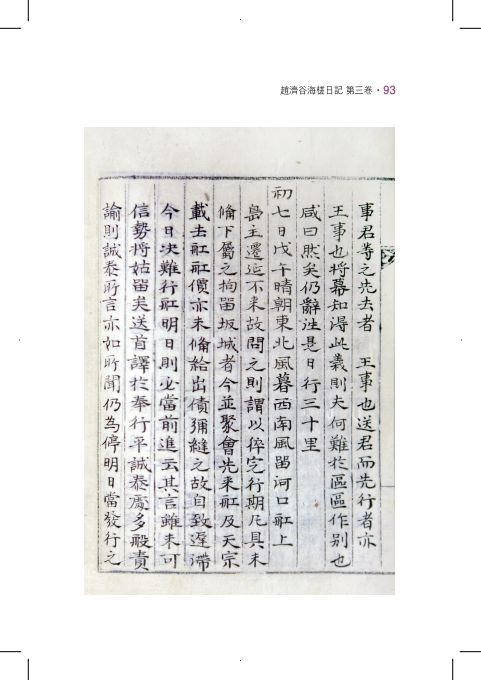 趙濟谷海槎日記 第三卷・93
事君等之先去者 王事也送君而先行者亦
王事也將幕知得此義則夫何難於區區作别也
咸曰然矣仍辭注是日行三十里
初七日戊午晴朝東北風暮西南風留河口舡上
島主遷延不来故問之則謂以猝定行期凡具未
俻下屬之拘留坂城者今並聚會先来舡及天宗
載去舡舡價亦未俻給出債彌縫之故自致遲滯
今日决難行舡明日則必當前進云其言雖未可
信勢將姑留矣送首譯於奉行平誠泰處多般責
諭則誠泰所言亦如所聞仍為停明日當發行之